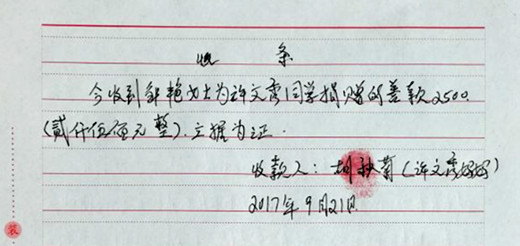 收条
今收到郭艳女士为许文露同学捐赠的善款2500.
(贰仟伍佰元整).立据为证.
收款人:胡秋菊(许文露妈妈)
2017年9月21日